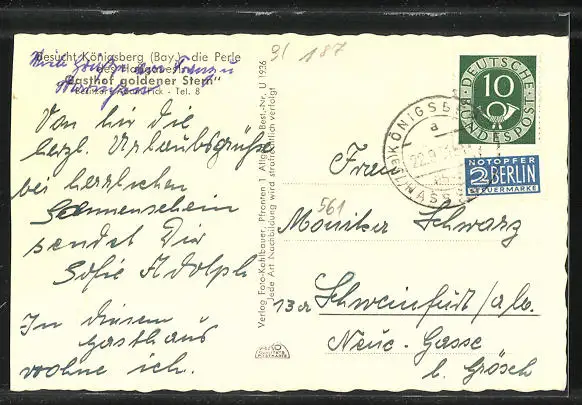 Besucht Königsberg (Bay.) - die Perle
"Gasthof goldener Stern"
Tel. 8
Von hir die
herzl. Urlaubsgrüße
bei herrlichen
Sonnenschein
sendet Dir
Sofie Adolph
In diesem
Gasthaus
wohne ich.
Verlag Foto-Kohlbauer, Pfronten 1 Allgäu Best.-Nr. U 1936
Jede Art Nachbildung wird strafrechtlich verfolgt
187
DEUTSCHE
BUNDESPOST
10
KÖNIGSBERG
a
NOTOPFER
2 BERLIN
STEUERMARKE
Frau
561
Moniker Schwarz
13a Schweinfurt/a/.
Neue-Gasse
b. Grösch